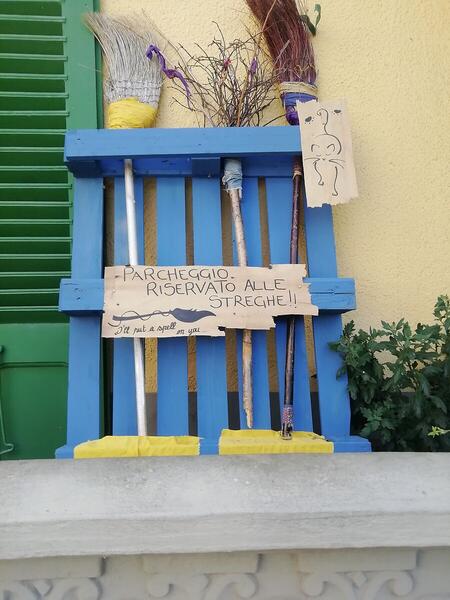 PARCHEGGIO
RISERVATO ALLE
STREGHE!!
I'll put a spell on you